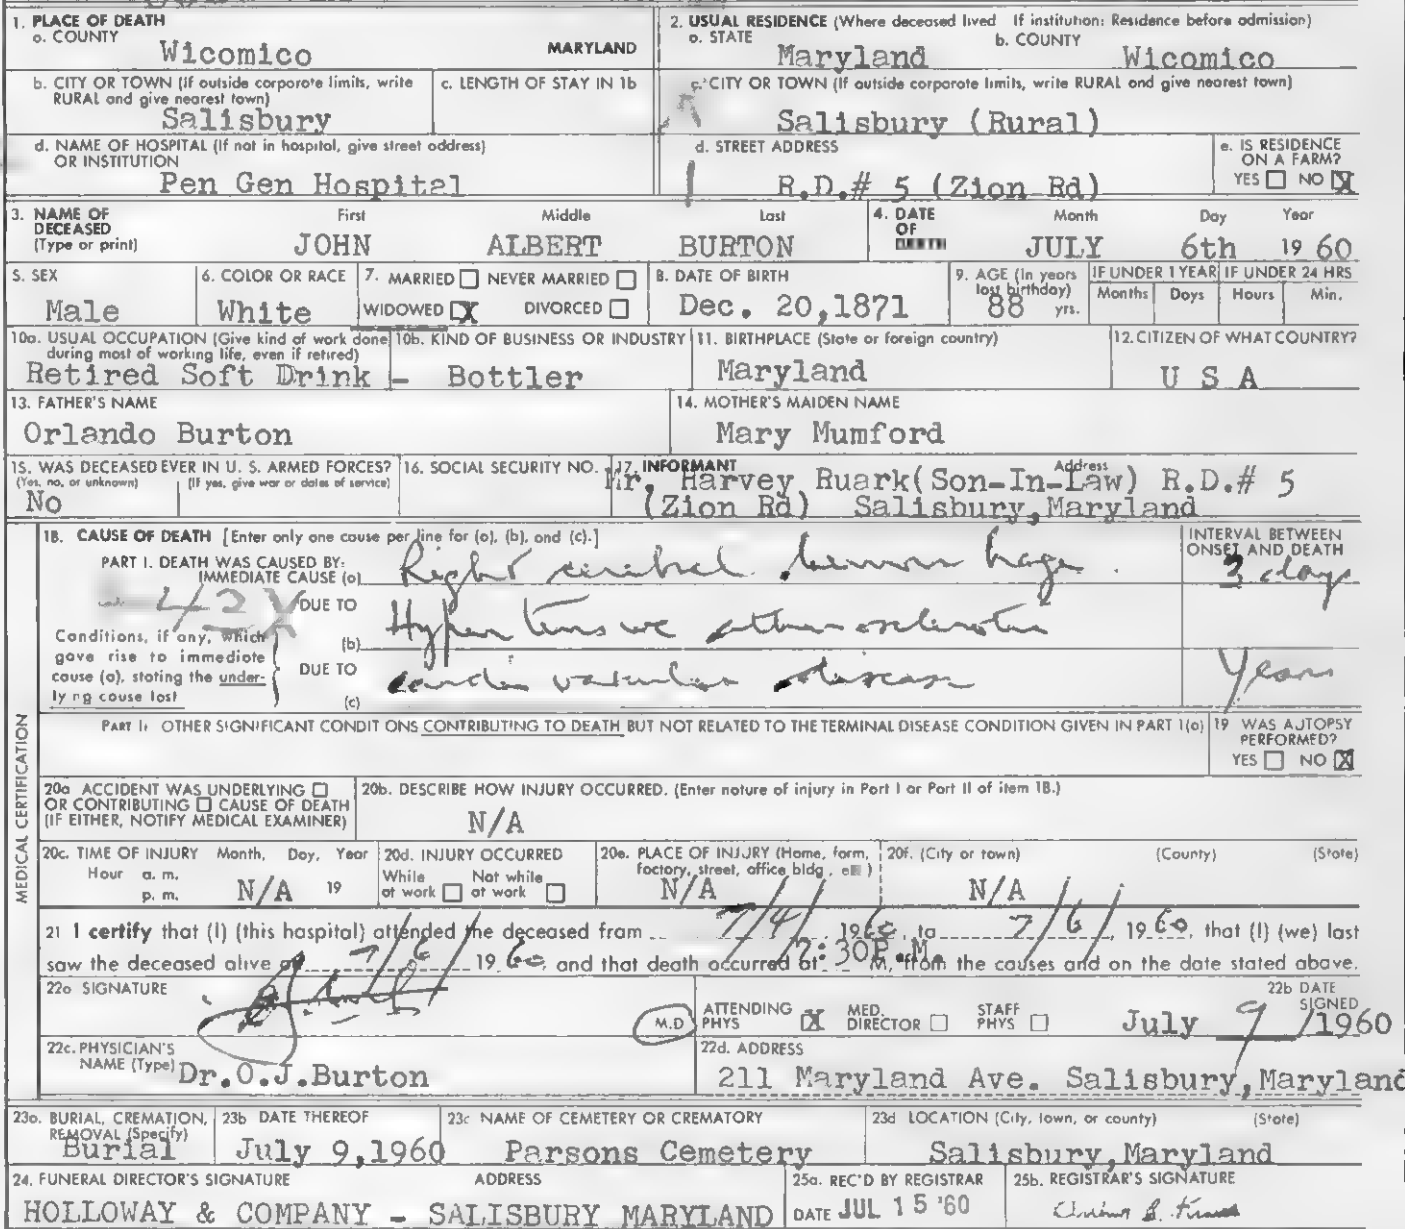 1. PLACE OF DEATH
a. COUNTY
Wicomico MARYLAND
2. USUAL RESIDENCE (Where deceased lived If institution: Residence before admission)
a. STATE b. COUNTY
Maryland Wicomico
b. CITY OR TOWN (If outside corporate limits, write RURAL and give nearest town)
Salisbury
c. LENGTH OF STAY IN 1b
c. CITY OR TOWN (If outside corporate limits, write RURAL and give nearest town)
Salisbury (Rural)
d. NAME OF HOSPITAL (If not in hospital, give street address)
OR INSTITUTION
Pen Gen Hospital
d. STREET ADDRESS
R.D.# 5 (Zion Rd)
e. IS RESIDENCE
ON A FARM?
YES NO X
3. NAME OF
DECEASED
(Type or print)
First Middle Last
JOHN ALBERT BURTON
4. DATE
OF
DEATH
Month Day Year
JULY 6th 19 60
5. SEX
Male
6. COLOR OR RACE
White
7. MARRIED NEVER MARRIED
WIDOWED X DIVORCED
8. DATE OF BIRTH
Dec. 20,1871
9. AGE (In years
last birthday)
88 yrs.
IF UNDER 1 YEAR IF UNDER 24 HRS
Months Days Hours Min.
10a. USUAL OCCUPATION (Give kind of work done
during most of working life, even if retired)
10b. KIND OF BUSINESS OR INDUSTRY
Retired Soft Drink - Bottler
11. BIRTHPLACE (State or foreign country)
Maryland
12. CITIZEN OF WHAT COUNTRY?
U S A
13. FATHER'S NAME
Orlando Burton
14. MOTHER'S MAIDEN NAME
Mary Mumford
15. WAS DECEASED EVER IN U. S. ARMED FORCES?
(Yes, no, or unknown) (If yes, give war or dates of service)
No
16. SOCIAL SECURITY NO.
17. INFORMANT Address
Mr. Harvey Ruark(Son-In-Law) R.D.# 5
(Zion Rd) Salisbury,Maryland
18. CAUSE OF DEATH [Enter only one cause per line for (a), (b), and (c).]
INTERVAL BETWEEN
ONSET AND DEATH
PART I. DEATH WAS CAUSED BY:
IMMEDIATE CAUSE (a) Right cerebral hemorrhage 3 days
42X DUE TO
Conditions, if any, which
gave rise to immediate
cause (a), stating the under-
lying cause last
(b) Hypertensive atherosclerotic
DUE TO
(c) cardio vascular disease Years
PART II OTHER SIGNIFICANT CONDITIONS CONTRIBUTING TO DEATH BUT NOT RELATED TO THE TERMINAL DISEASE CONDITION GIVEN IN PART 1(a)
19 WAS AUTOPSY
PERFORMED?
YES NO X
MEDICAL CERTIFICATION
20a ACCIDENT WAS UNDERLYING
OR CONTRIBUTING CAUSE OF DEATH
(IF EITHER, NOTIFY MEDICAL EXAMINER)
20b. DESCRIBE HOW INJURY OCCURRED. (Enter nature of injury in Part I or Part II of item 18.)
N/A
20c. TIME OF INJURY Month, Day, Year
Hour a. m.
p. m. N/A 19
20d. INJURY OCCURRED
While Not while
at work at work
20e. PLACE OF INJURY (Home, farm,
factory, street, office bldg., etc.)
N/A
20f. (City or town) (County) (State)
N/A
21 I certify that (I) (this hospital) attended the deceased from 7/4/ 1960, to 7/6/, 1960, that (I) (we) last
saw the deceased alive on 7/6/ 1960, and that death occurred at 2:30P.M. M, from the causes and on the date stated above.
22a SIGNATURE
M.D
ATTENDING PHYS X MED. DIRECTOR STAFF PHYS
22b DATE
SIGNED
July 9/1960
22c. PHYSICIAN'S
NAME (Type) Dr.O.J.Burton
22d. ADDRESS
211 Maryland Ave. Salisbury,Maryland
23a. BURIAL, CREMATION,
REMOVAL (Specify)
Burial
23b DATE THEREOF
July 9,1960
23c NAME OF CEMETERY OR CREMATORY
Parsons Cemetery
23d LOCATION (City, town, or county) (State)
Salisbury,Maryland
24. FUNERAL DIRECTOR'S SIGNATURE ADDRESS
HOLLOWAY & COMPANY - SALISBURY MARYLAND
25a. REC'D BY REGISTRAR
DATE JUL 15 '60
25b. REGISTRAR'S SIGNATURE